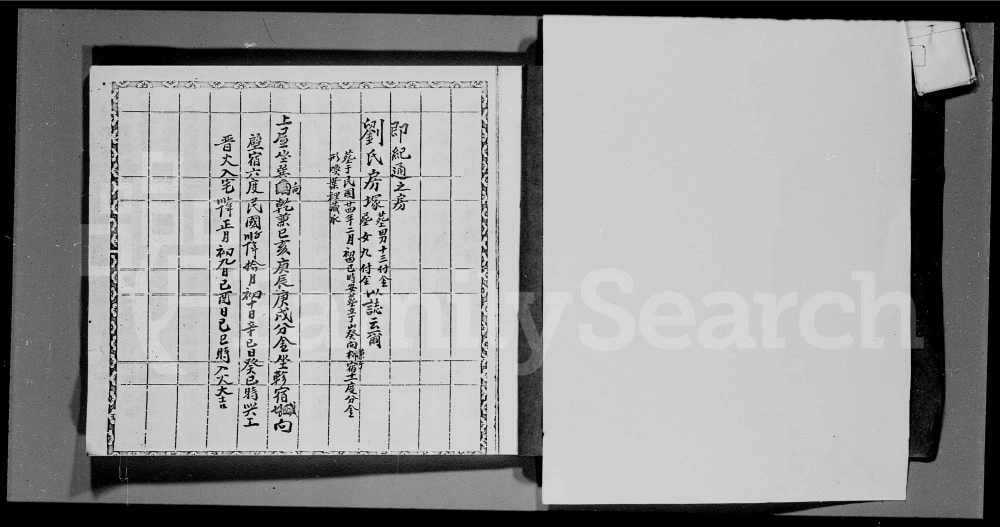 即紀通之房
劉氏房塚 墓男十三付金
墓女九付金 以誌云爾
墓于民國廿四年二月初四巳時安墓立丁山癸向 柳宿十一度分金
形喚葉裡藏
上屋坐巽向乾兼巳亥庚辰庚戌分金坐軫宿 向
壁宿六度民國 年拾月初十日辛巳日癸巳時興工
晋火入宅 年正月初九日己酉日己巳時入火大吉
FamilySearch